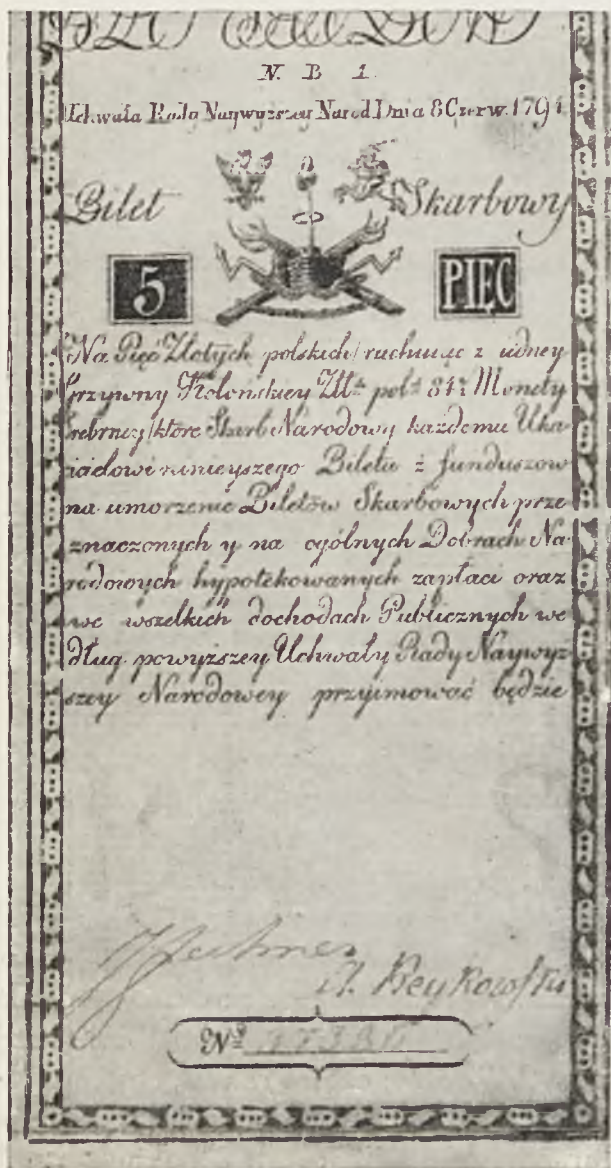 N. B 1.
Uchwała Rady Naywyzszey Narod. Dnia 8 Czerw. 1794
Bilet Skarbowy
5 PIĘC
Na Pięć Złotych polskich rachuiąc z iedney
grzywny Kolońskiey Złł. pol. 84½ Monety
srebrney które Skarb Narodowy każdemu Uka
zicielowi ninieyszego Biletu z funduszow
na umorzenie Biletów Skarbowych prze
znaczonych y na ogólnych Dobrach Na
rodowych hypotekowanych zapłaci oraz
we wszelkich dochodach Publicznych we
dług powyższey Uchwały Rady Naywyż
szey Narodowey przyimować będzie
A. Reykowski
Nº